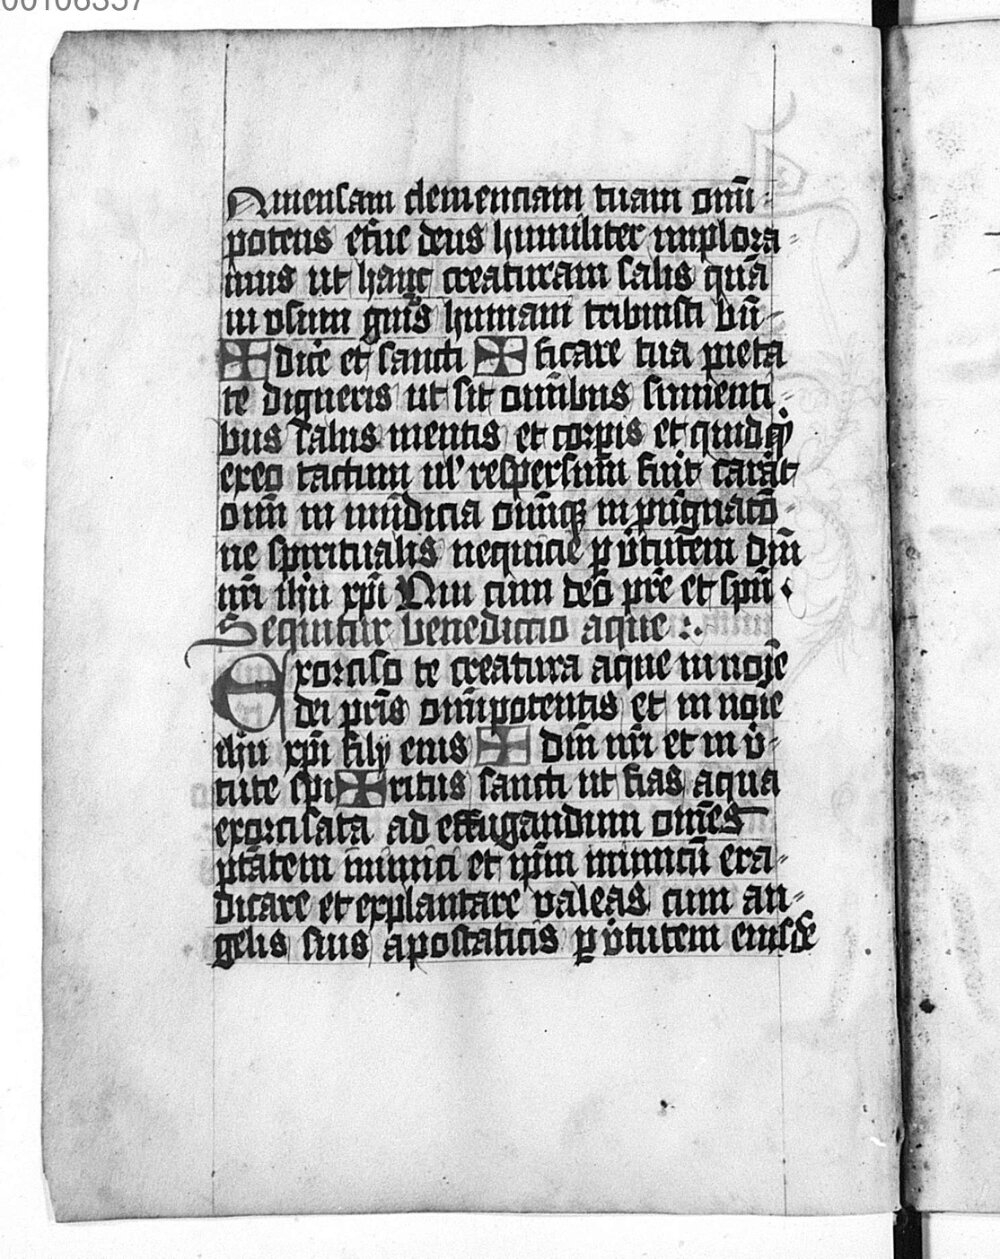 00106357
Nmensam clemenciam tuam omī-
potens et̄ne deus humiliter implora-
mus ut hanc creaturam salis quā
in vsum gn̄is humani tribuisti bn̄-
✠ dicē et sancti ✠ ficare tua pieta
te digneris ut sit omībus sumenti-
bus salus mentis et corpis et quidq̄
exeo tactum ul' respersum fuit careat
omī in mūdicia omīq; inpugnatō-
ne spiritualis nequicie p v̄tutem dn̄i
nr̄i ihu xp̄i Qui cum deo pr̄e et spū
Sequitur benedictio aque :.
Exorciso te creatura aque in noīe
dei pr̄is omīpotentis et in noīe
ihu xp̄i filij eius ✠ dn̄i nr̄i et in v̄-
tute spi ✠ ritus sancti ut fias aqua
exorcisata ad effugandum omēs
ptātem inimici et ip̄m inimicū era-
dicare et explantare valeas cum an-
gelis suis apostaticis p v̄tutem eiusdē